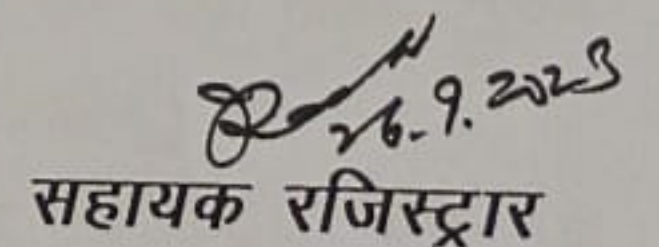 26.9.2023
सहायक रजिस्ट्रार